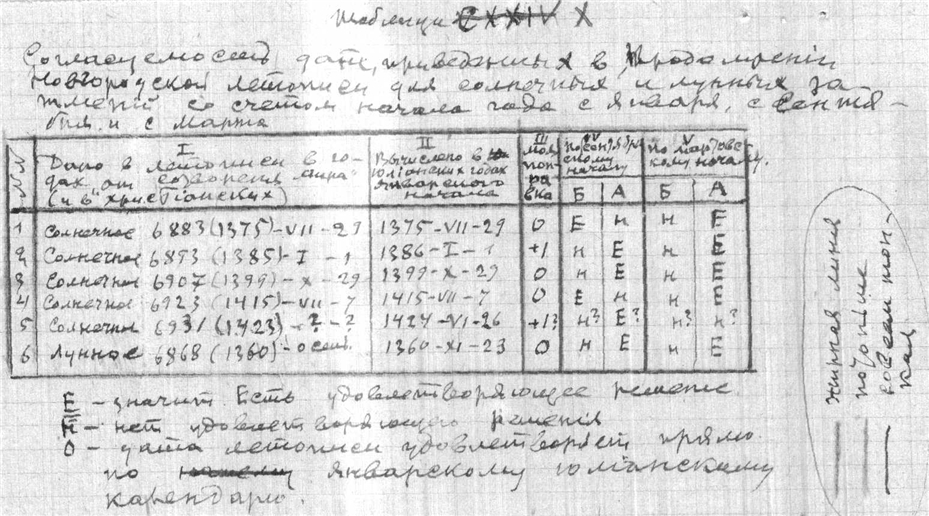 Таблица X
Согласуемость дат, приведенных в Продолжении
Новгородской летописи для солнечных и лунных за
тмений со счетом начала года с января, с сентя-
бря и с марта
№№
I
Дано в летописи в го-
дах от "сотворения мира"
(и в "христианских")
II
Вычислено в
Юлианских годах
январского
начала
III
моя
поп
рав
ка
IV
по сентябрь
скому
началу
V
по мартовс
кому началу
Б А Б А
1 Солнечное 6883 (1375)-VII-29 1375-VII-29 0 Е Н Н Е
2 Солнечное 6893 (1385)-I-1 1386-I-1 +1 Н Е Н Е
3 Солнечное 6907 (1399)-X-29 1399-X-29 0 Н Е Н Е
4 Солнечное 6923 (1415)-VII-7 1415-VII-7 0 Е Н Н Е
5 Солнечн 6931 (1423)-?-? 1424-VI-26 +1? Н? Е? Н? Н?
6 Лунное 6868 (1360)-осен. 1360-XI-23 0 Н Е Н Е
Е - значит Есть удовлетворяющее решение
Н - нет удовлетворяющего решенiя
0 - дата летописи удовлетворяет прямо
по январскому юлианскому
календарю.
жирная линия
потоньше
совсем тон-
кая